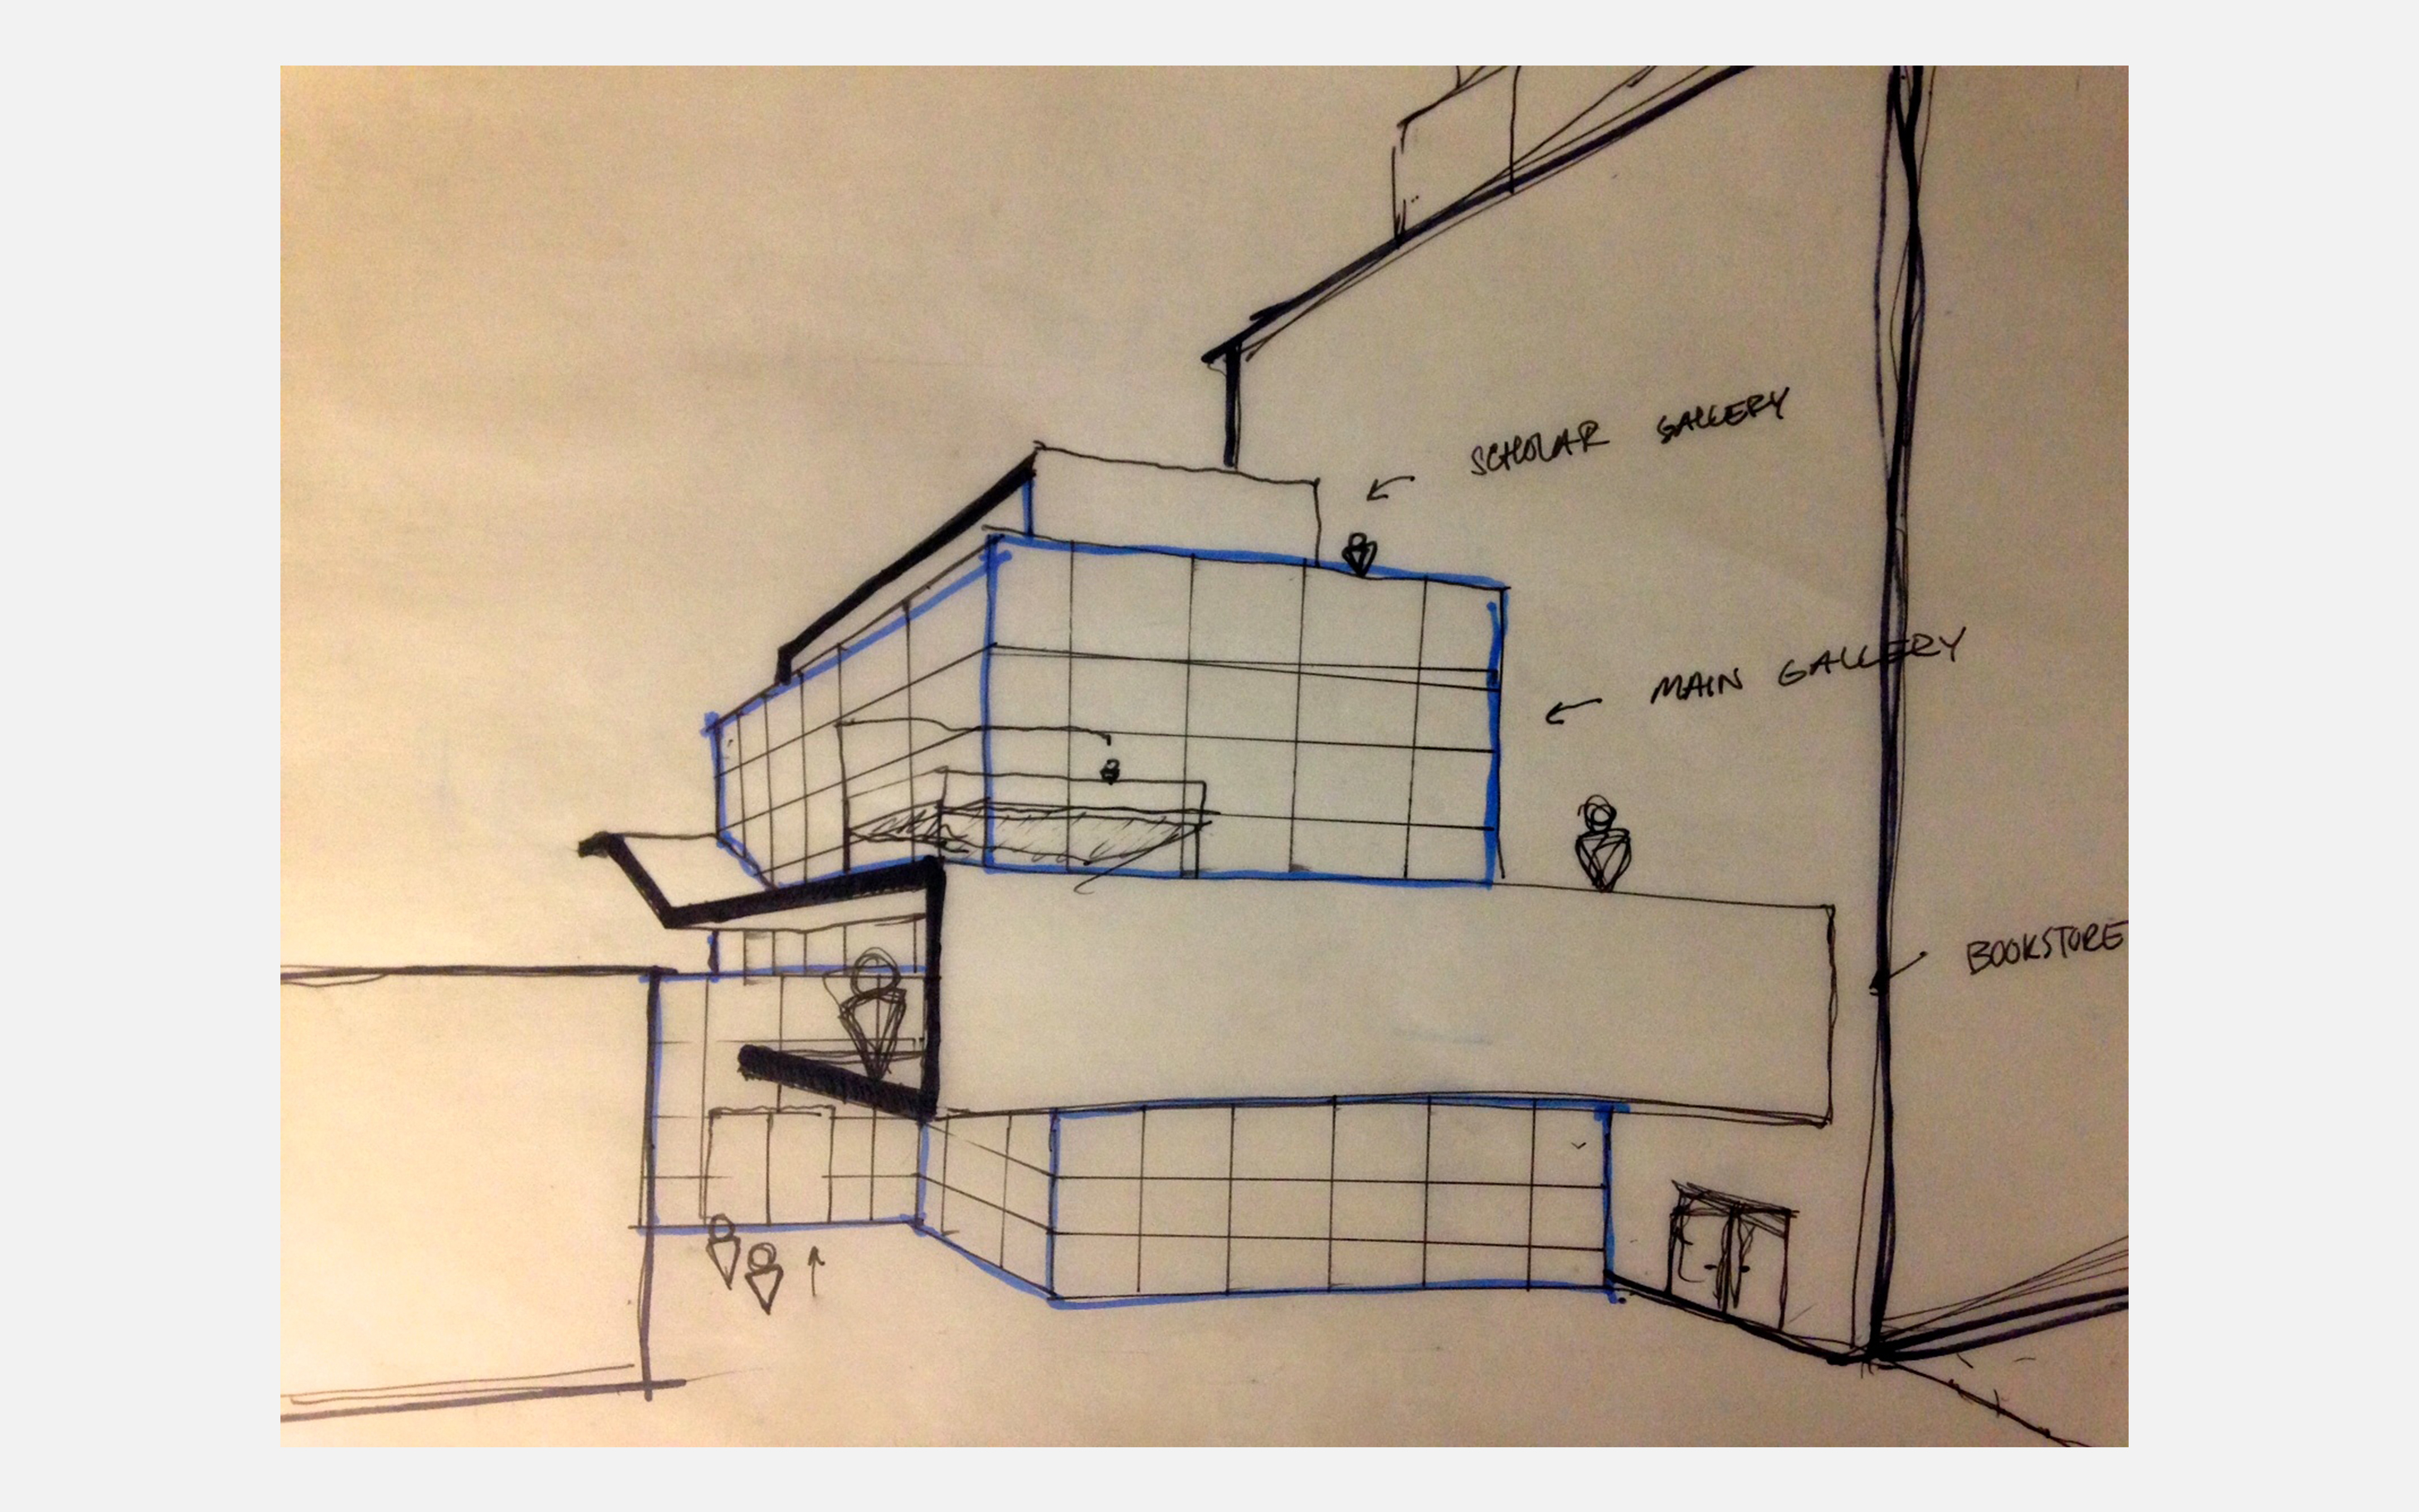 SCHOLAR GALLERY
MAIN GALLERY
BOOKSTORE